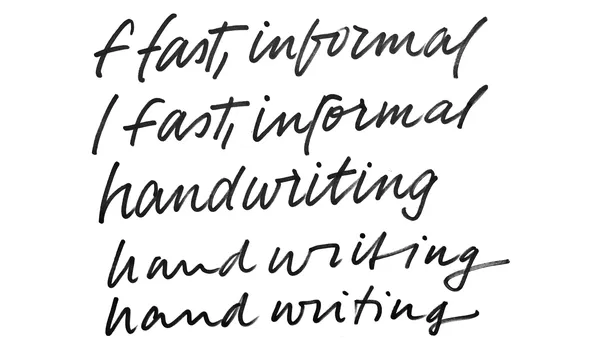 f fast, informal
/ fast, informal
handwriting
hand writing
hand writing